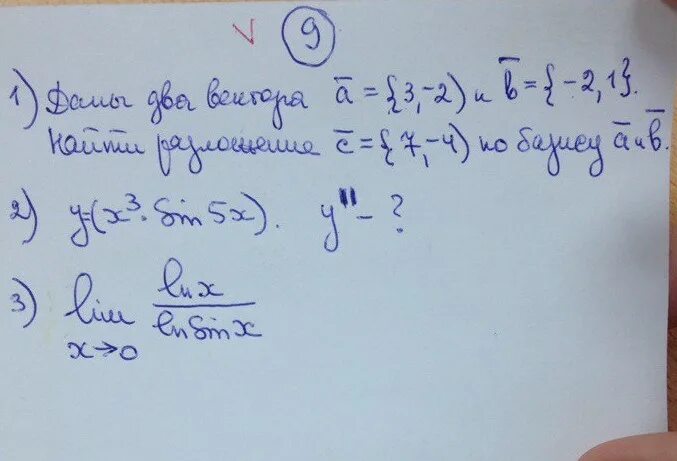 V 9
1) Даны два вектора a̅ = {3, -2) и b̅ = { -2, 1}.
Найти разложение c̅ = {7, -4) по базису a̅ и b̅.
2) y=(x³·Sin5x). y'' - ?
3) lim lnx / lnSinx
x→0